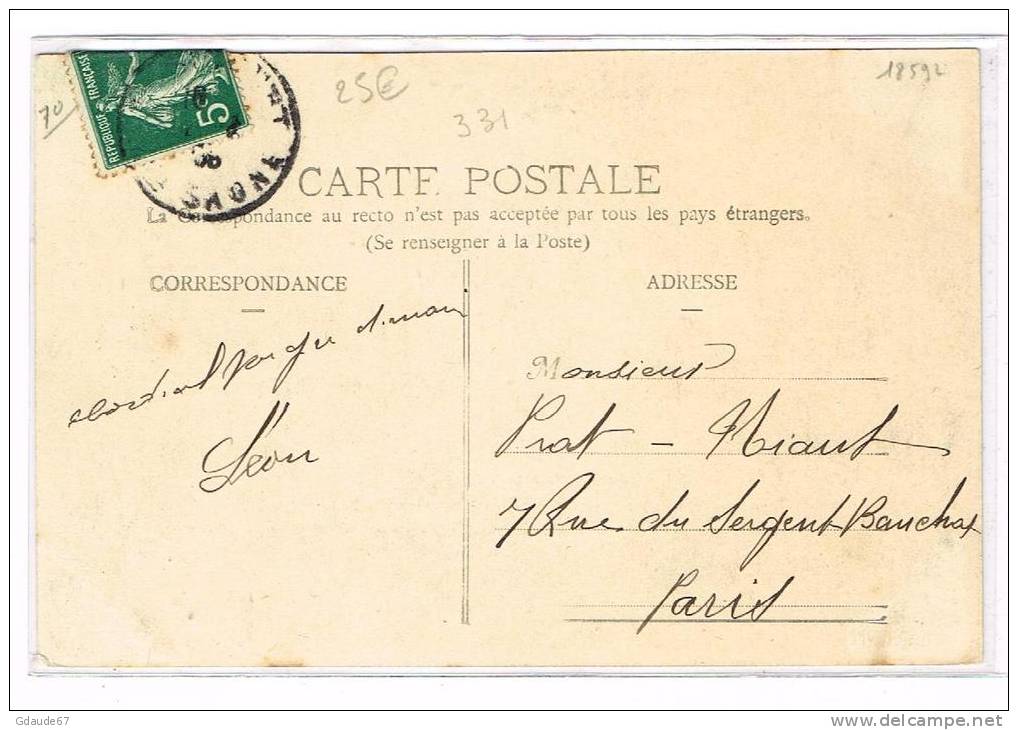 RÉPUBLIQUE FRANÇAISE
5
70
25€
331
18592
CARTE POSTALE
La Correspondance au recto n'est pas acceptée par tous les pays étrangers.
(Se renseigner à la Poste)
CORRESPONDANCE
ADRESSE
Léon
Monsieur
Prat - Niaut
7 Rue du Sergent Bauchat
Paris
Gdaude67
www.delcampe.net